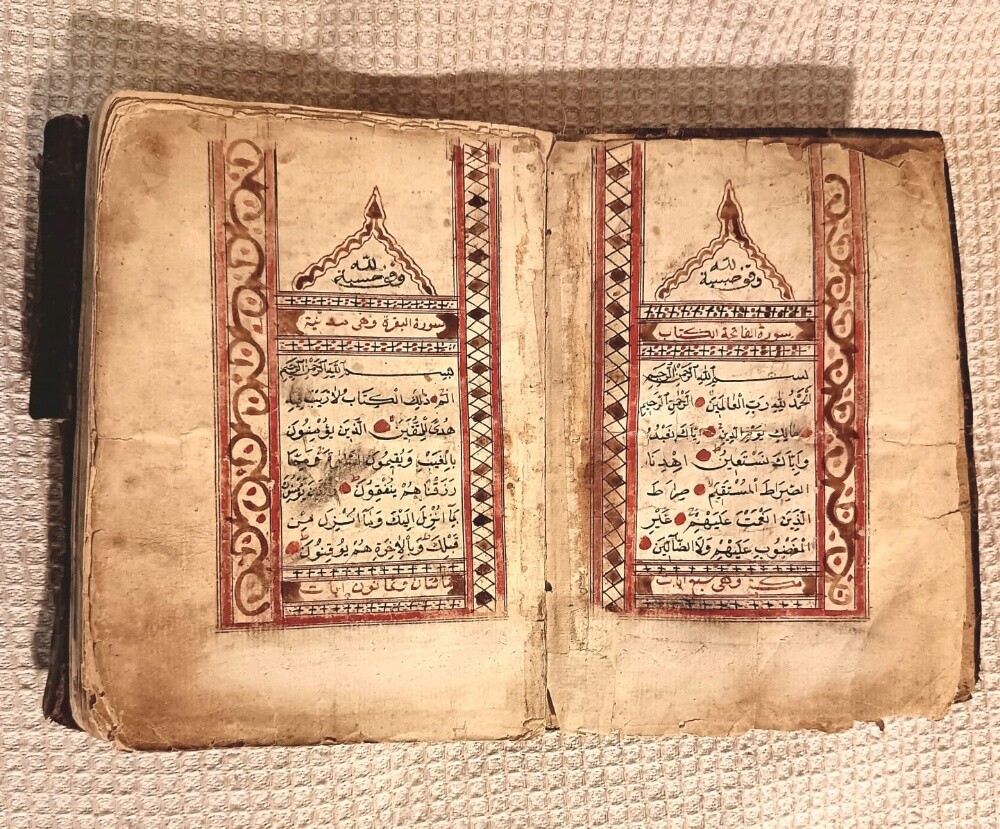 وقف حبسية
لله
سورة الفاتحة الكتاب
بسم الله الرحمن الرحيم
الحمد لله رب العالمين الرحمن الرحيم
مالك يوم الدين اياك نعبد
واياك نستعين اهدنا
الصراط المستقيم صراط
الذين انعمت عليهم غير
المغضوب عليهم ولا الضالين
مكية وهي سبع ايات
لله
وقف حبسية
سورة البقرة وهي مدنية
بسم الله الرحمن الرحيم
الم ذلك الكتاب لا ريب فيه
هدى للمتقين الذين يؤمنون
بالغيب ويقيمون ومما
رزقناهم ينفقون يؤمنون
بما انزل اليك وما انزل من
قبلك وبالاخرة هم يوقنون
مائتان وثمانون ايات